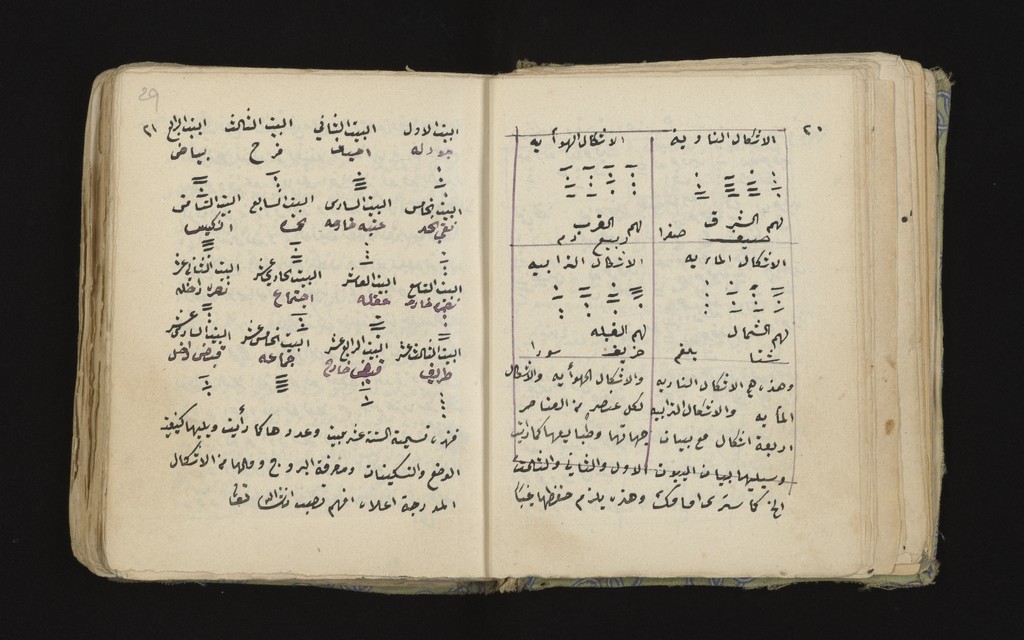 ٢٠
الاشكال الناريه الاشكال الهوأيه
لهم الشرق لهم الغرب
صيف صفرا ربيع دم
الاشكال المائيه الاشكال الترابيه
لهم الشمال لهم القبله
شتا بلغم خريف سودا
وهذه هي الاشكال الناريه والاشكال الهوأيه والاشكال
المأيه والاشكال الترابيه لكل عنصر من العناصر
اربعة اشكال مع بيان جهاتها وطبايعها كما رأيت
وسيليها بيان البيوت الاول والثاني والثالث
الخ كما سترى امامك وهذه يلزم حفظها غيبًا
29
٢١
البيت الاول البيت الثاني البيت الثالث البيت الرابع
جودله احيان فرح بياض
البيت الخامس البيت السادس البيت السابع البيت الثامن
نقي الخد عتبه خارجه حمره انكيس
البيت التاسع البيت العاشر البيت الحادي عشر البيت الثاني عشر
نصره خارجه عقله اجتماع نصره داخله
البيت الثالث عشر البيت الرابع عشر البيت الخامس عشر البيت السادس عشر
طريق قبض خارج جماعه قبض داخل
فهذه تسمية الستة عشر بيت وعددها كما رأيت ويليها كيفية
الوضع والتسكينات ومعرفة البروج ومالها من الاشكال
المدرجة اعلاه افهم تصب